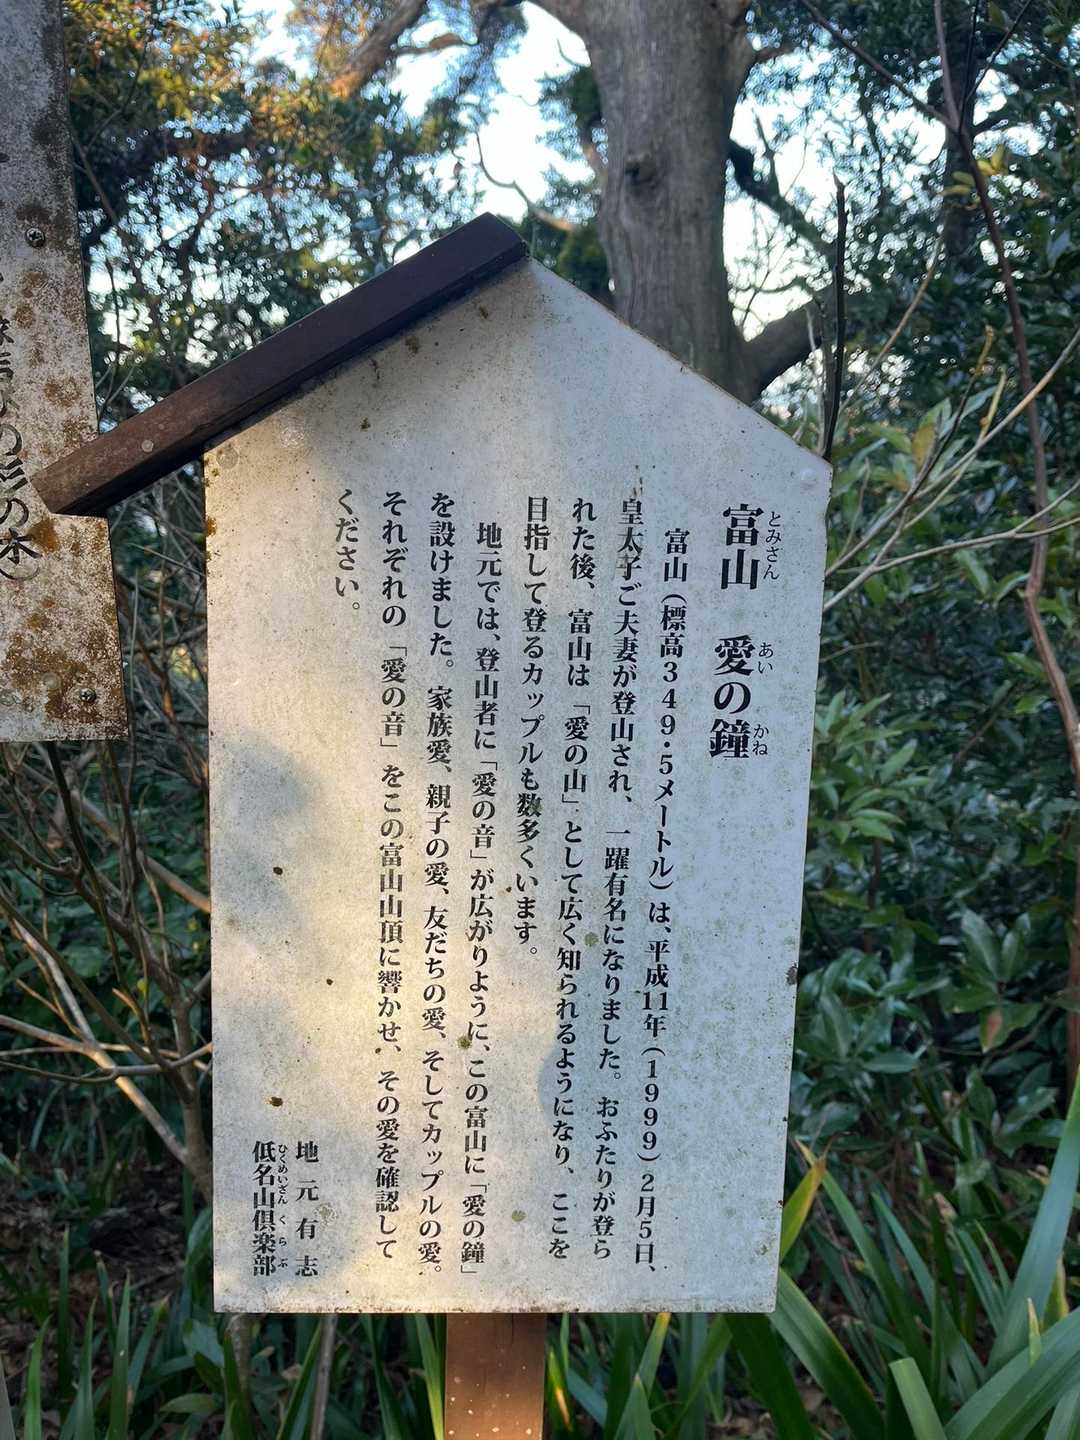 富山 愛の鐘
とみさん あい かね
富山（標高３４９・５メートル）は、平成11年（１９９９）２月５日、
皇太子ご夫妻が登山され、一躍有名になりました。おふたりが登ら
れた後、富山は「愛の山」として広く知られるようになり、ここを
目指して登るカップルも数多くいます。
地元では、登山者に「愛の音」が広がりように、この富山に「愛の鐘」
を設けました。家族愛、親子の愛、友だちの愛、そしてカップルの愛。
それぞれの「愛の音」をこの富山山頂に響かせ、その愛を確認して
ください。
地元有志
低名山倶楽部
ひくめいざん くらぶ
の杉の木）